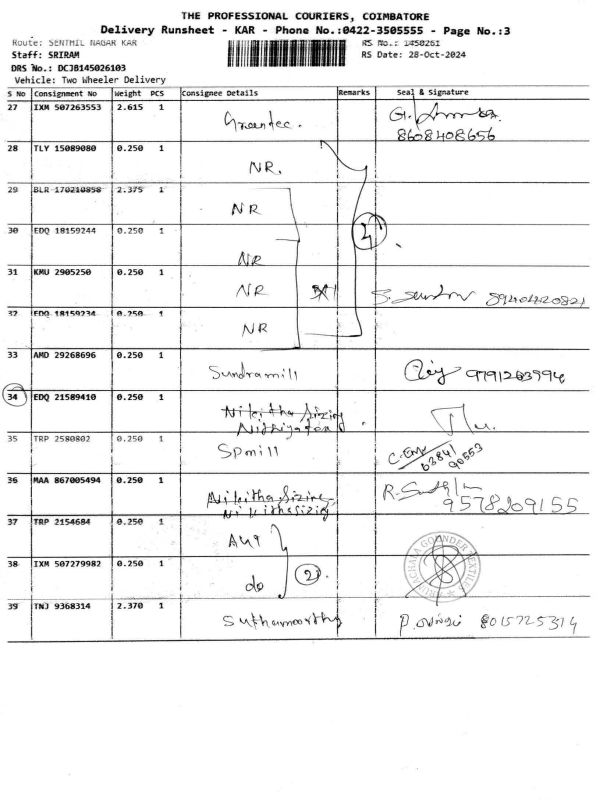 THE PROFESSIONAL COURIERS, COIMBATORE
Delivery Runsheet - KAR - Phone No.:0422-3505555 - Page No.:3
Route: SENTHIL NAGAR KAR RS No.: 1450261
Staff: SRIRAM RS Date: 28-Oct-2024
DRS No.: DCJB145026103
Vehicle: Two Wheeler Delivery
S No Consignment No Weight PCS Consignee Details Remarks Seal & Signature
27 IXM 507263553 2.615 1 Greentec.
8608408656
28 TLY 15089080 0.250 1 NR.
29 BLR 170210858 2.375 1 NR
30 EDQ 18159244 0.250 1 NR
31 KMU 2905250 0.250 1 NR 8940420821
32 EDQ 18159234 0.250 1 NR
33 AMD 29268696 0.250 1 Sundramill 9791263994
34 EDQ 21589410 0.250 1 Nikitha Sizing
35 TRP 2580802 0.250 1 Spmill 63841 90553
36 MAA 867005494 0.250 1 Nikitha Sizing 9578209155
37 TRP 2154684 0.250 1
38 IXM 507279982 0.250 1 do 2
39 TNJ 9368314 2.370 1 Suthamoorthy 8015725314